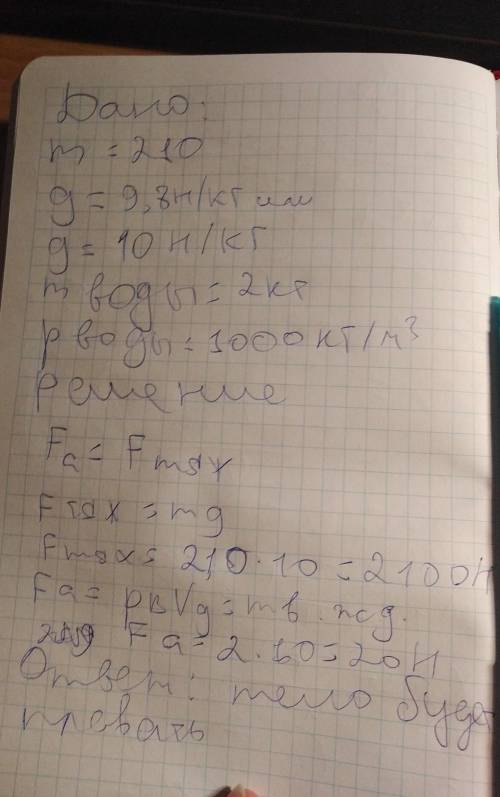 Дано:
m = 210
g = 9,8 Н/кг или
g = 10 Н/кг
m воды = 2 кг
p воды = 1000 кг/м³
Решение
Fa = Fтяж
Fтяж = mg
Fтяж = 210 · 10 = 2100 Н
Fa = pвVg = mв. жид.
Fa = 2 · 10 = 20 Н
Ответ: тело будет
плавать